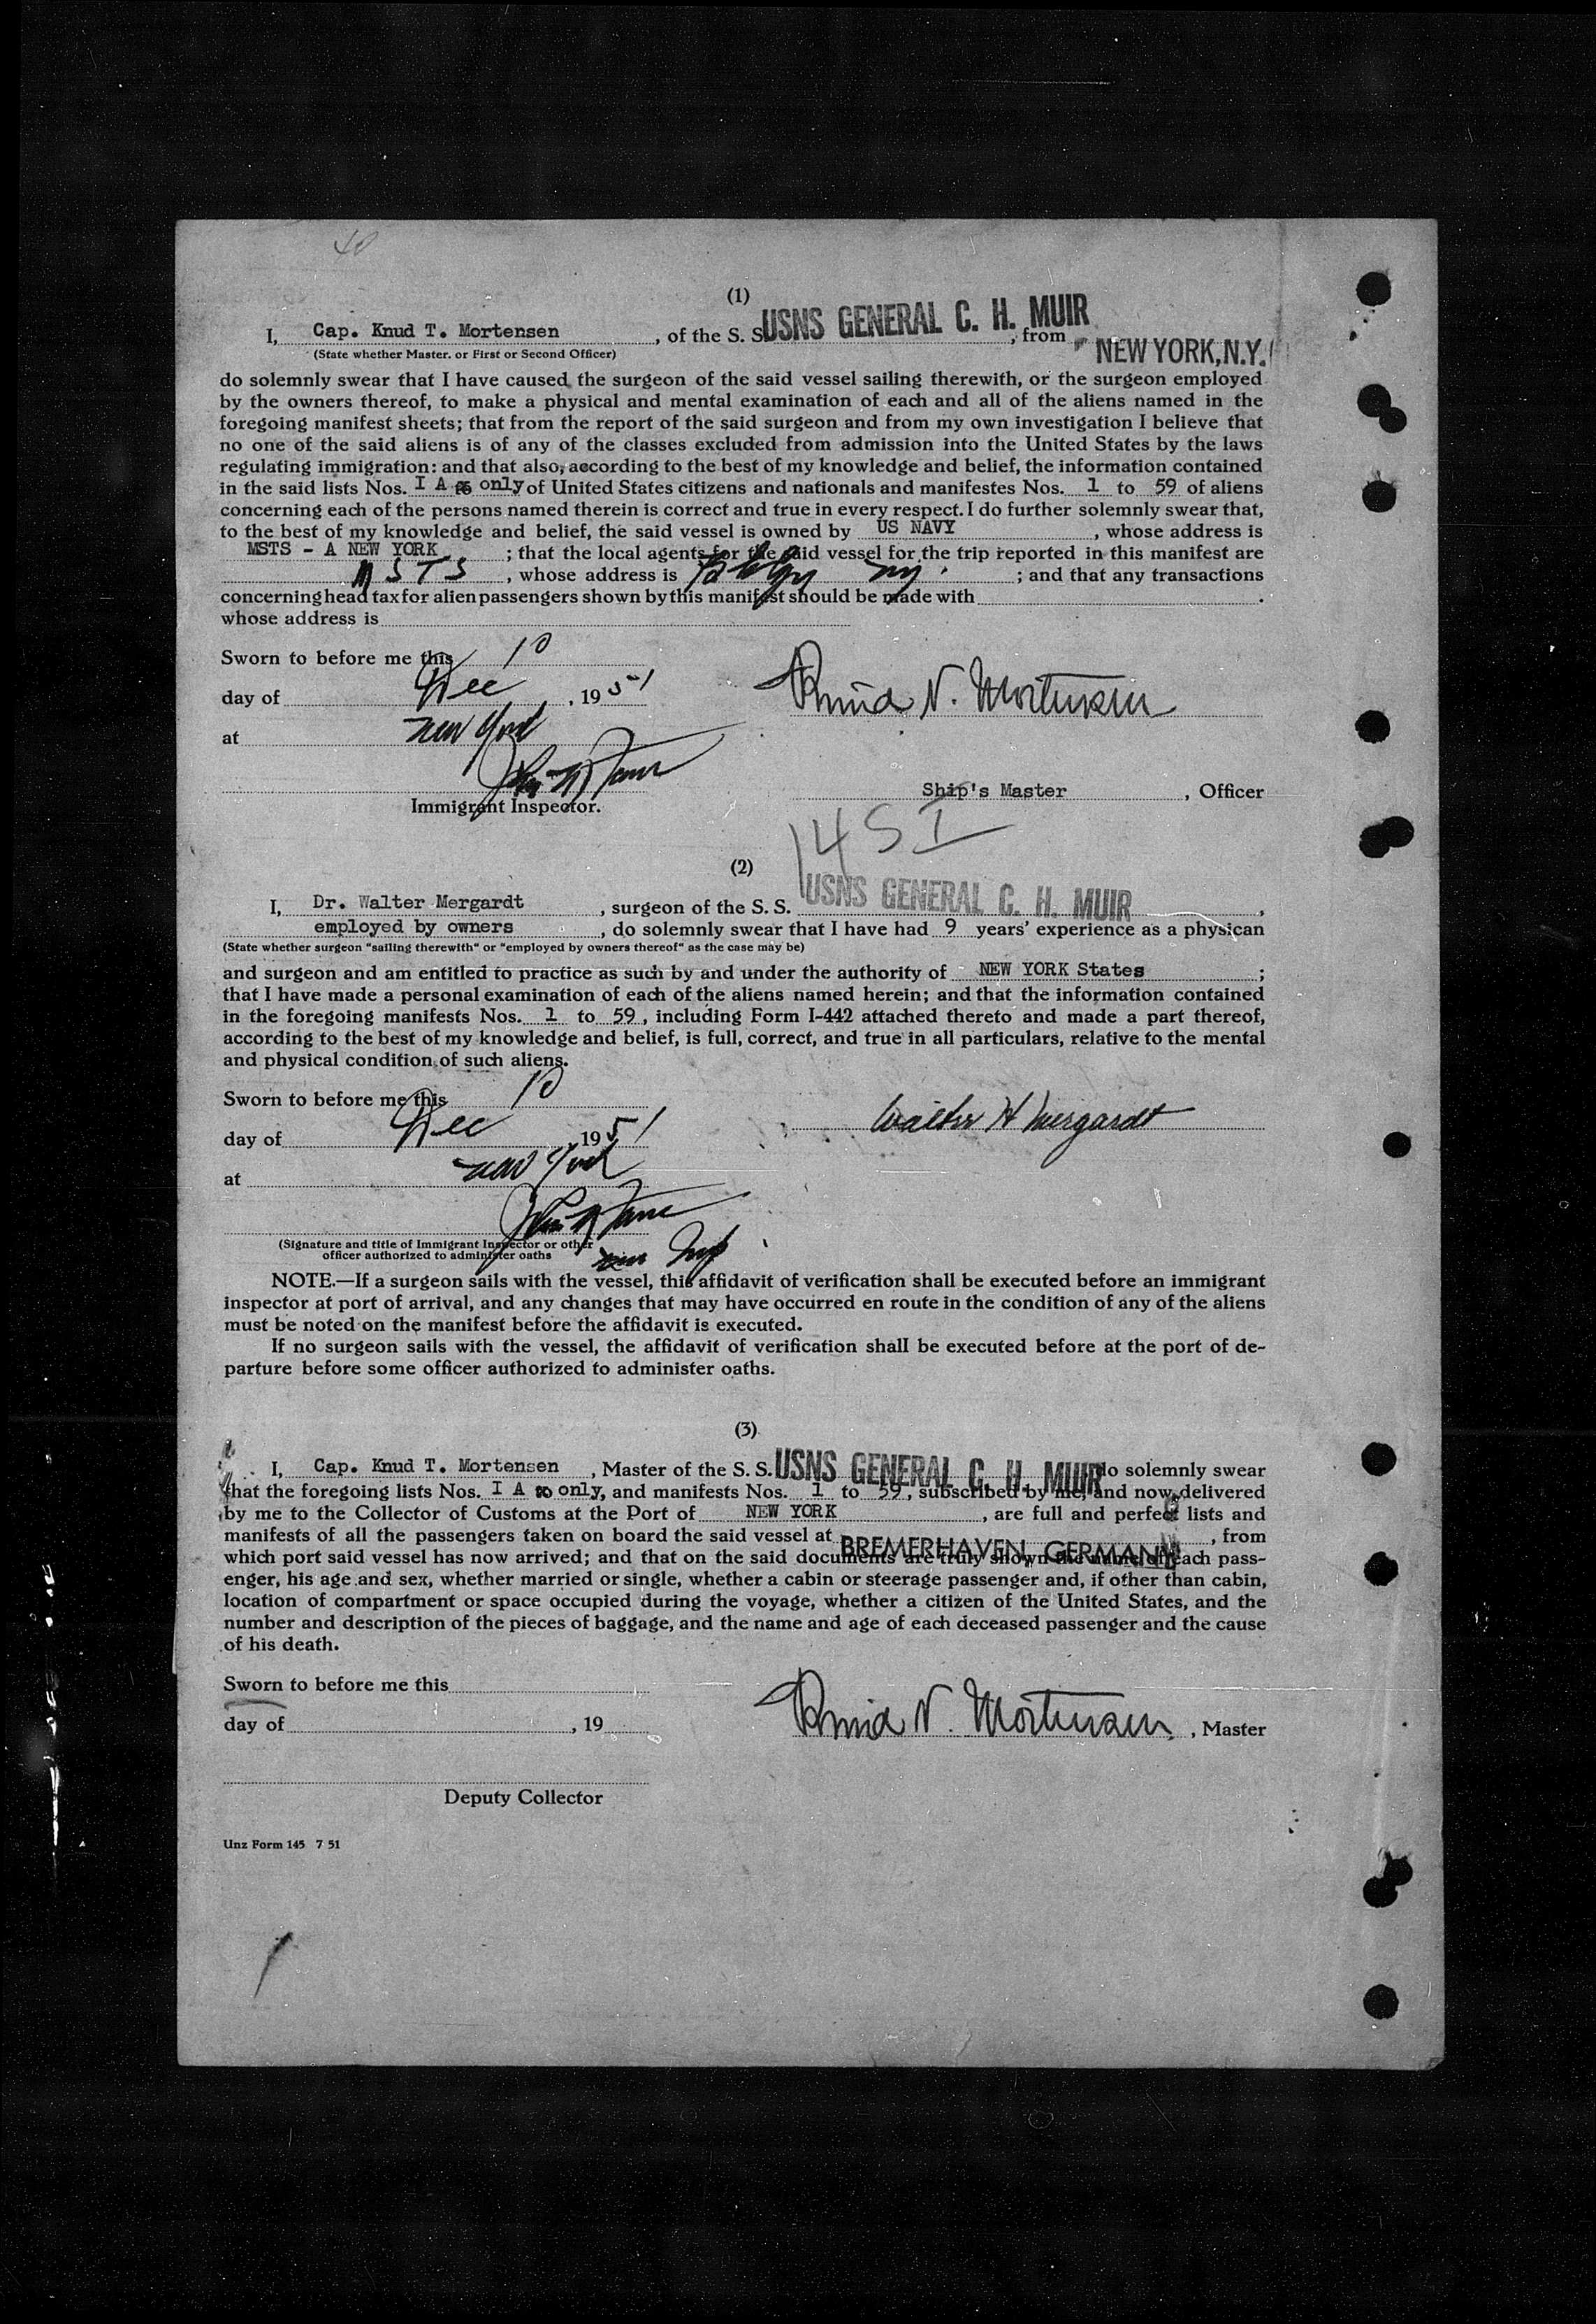 40
(1)
I, Cap. Knud T. Mortensen, of the S. S. USNS GENERAL C. H. MUIR, from NEW YORK, N.Y.
(State whether Master. or First or Second Officer)
do solemnly swear that I have caused the surgeon of the said vessel sailing therewith, or the surgeon employed
by the owners thereof, to make a physical and mental examination of each and all of the aliens named in the
foregoing manifest sheets; that from the report of the said surgeon and from my own investigation I believe that
no one of the said aliens is of any of the classes excluded from admission into the United States by the laws
regulating immigration: and that also, according to the best of my knowledge and belief, the information contained
in the said lists Nos. I A only of United States citizens and nationals and manifestes Nos. 1 to 59 of aliens
concerning each of the persons named therein is correct and true in every respect. I do further solemnly swear that,
to the best of my knowledge and belief, the said vessel is owned by US NAVY, whose address is
MSTS - A NEW YORK; that the local agents for the said vessel for the trip reported in this manifest are
MSTS, whose address is ny.; and that any transactions
concerning head tax for alien passengers shown by this manifest should be made with.
whose address is
Sworn to before me this 10
day of Dec, 1951
Knud N. Mortensen
at New York
Ship's Master, Officer
Immigrant Inspector.
145I
(2)
I, Dr. Walter Mergardt, surgeon of the S. S. USNS GENERAL C. H. MUIR,
employed by owners, do solemnly swear that I have had 9 years' experience as a physican
(State whether surgeon "sailing therewith" or "employed by owners thereof" as the case may be)
and surgeon and am entitled to practice as such by and under the authority of NEW YORK States;
that I have made a personal examination of each of the aliens named herein; and that the information contained
in the foregoing manifests Nos. 1 to 59, including Form I-442 attached thereto and made a part thereof,
according to the best of my knowledge and belief, is full, correct, and true in all particulars, relative to the mental
and physical condition of such aliens.
Sworn to before me this 10
day of Dec 1951
Walter H Mergardt
at New York
(Signature and title of Immigrant Inspector or other
officer authorized to administer oaths
Insp
NOTE.—If a surgeon sails with the vessel, this affidavit of verification shall be executed before an immigrant
inspector at port of arrival, and any changes that may have occurred en route in the condition of any of the aliens
must be noted on the manifest before the affidavit is executed.
If no surgeon sails with the vessel, the affidavit of verification shall be executed before at the port of de-
parture before some officer authorized to administer oaths.
(3)
I, Cap. Knud T. Mortensen, Master of the S. S. USNS GENERAL C. H. MUIR do solemnly swear
that the foregoing lists Nos. I A only, and manifests Nos. 1 to 59, subscribed by me, and now delivered
by me to the Collector of Customs at the Port of NEW YORK, are full and perfect lists and
manifests of all the passengers taken on board the said vessel at BREMERHAVEN, GERMANY, from
which port said vessel has now arrived; and that on the said documents are truly shown the name of each pass-
enger, his age and sex, whether married or single, whether a cabin or steerage passenger and, if other than cabin,
location of compartment or space occupied during the voyage, whether a citizen of the United States, and the
number and description of the pieces of baggage, and the name and age of each deceased passenger and the cause
of his death.
Sworn to before me this
day of, 19
Knud N. Mortensen, Master
Deputy Collector
Unz Form 145 7 51